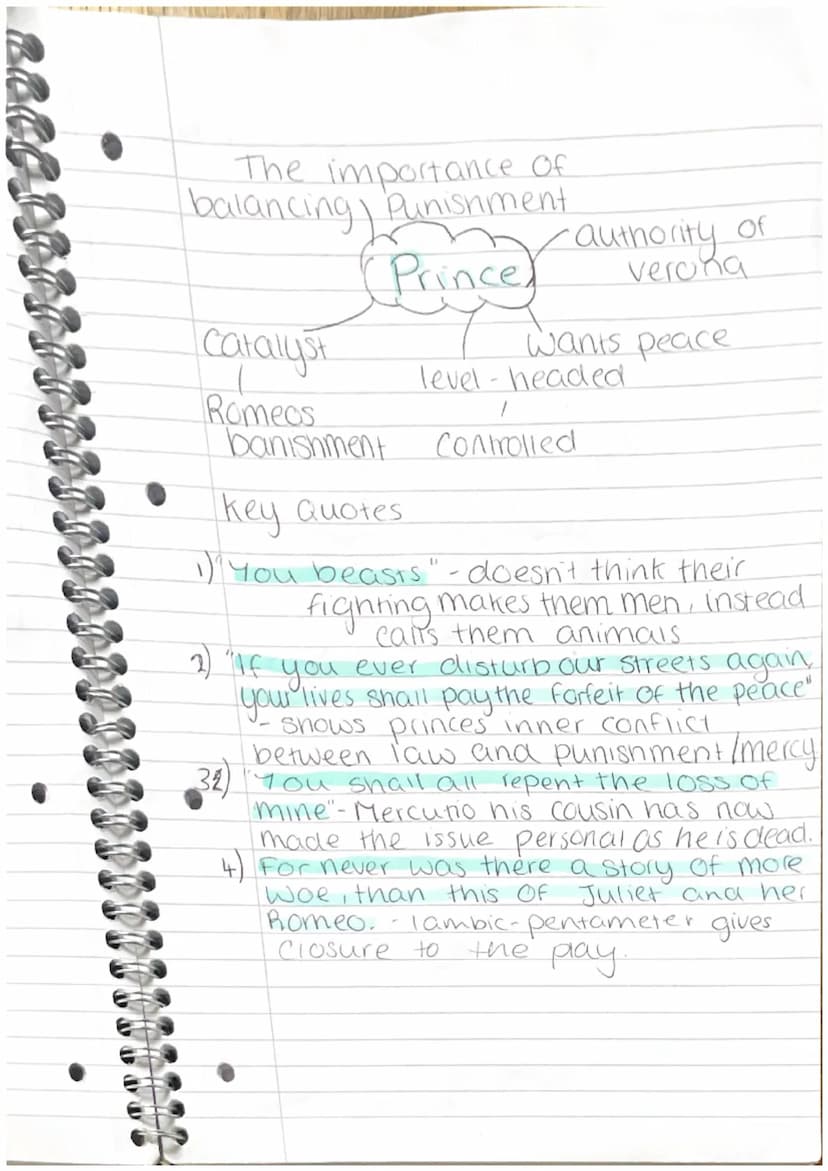 The importance of
balancing punishment
authority of
verona
Prince
Catalyst
wants peace
level-headed
Romeos
banishment
controlled
key quotes
1) "You beasts" - doesn't think their
fighting makes them men, instead
calls them animals
2) "If you ever disturb our streets again,
your lives shall pay the forfeit of the peace"
- shows princes inner conflict
between law and punishment/mercy
3) "You shall all repent the loss of
mine" - Mercutio his cousin has now
made the issue personal as he is dead.
4) For never was there a story of more
woe, than this of Juliet and her
Romeo. - Iambic-pentameter gives
closure to the play.